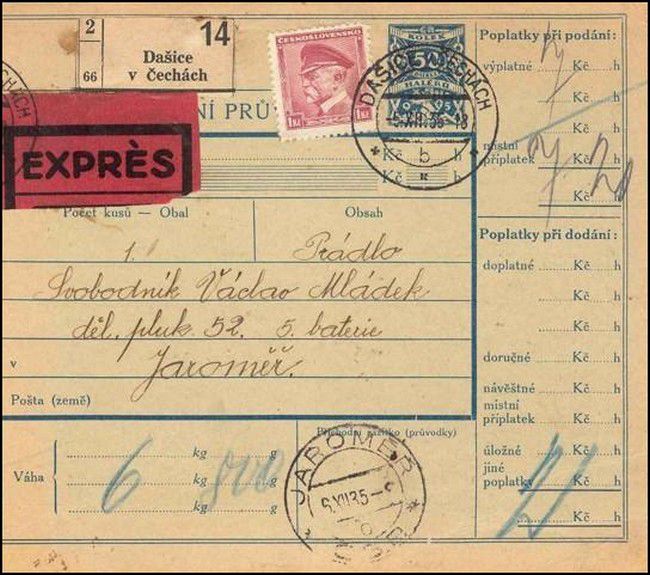 2
66
14
Dašice
v Čechách
ČESKOSLOVENSKO
1Kč 1Kč
KOLEK
50
HALÉŘŮ
DAŠICE V ČECHÁCH
-5.XII.35-18
* b *
EXPRÈS
NÍ PRŮ
Kč h
Kč h
Počet kusů — Obal Obsah
1. Prádlo
Svobodník Václav Mládek
děl. pluk. 52. 5. baterie
v Jaroměř.
Pošta (země)
Váha
kg g
6 kg 800 g
kg g
Příchodní razítko (průvodky)
JAROMĚŘ
6.XII.35-
Poplatky při podání:
výplatné Kč h
Kč h
místní
příplatek Kč h
7 20
Kč h
Poplatky při dodání:
doplatné Kč h
Kč h
Kč h
doručné Kč h
návěštné Kč h
místní
příplatek Kč h
úložné Kč h
jiné
poplatky Kč h
Kč h